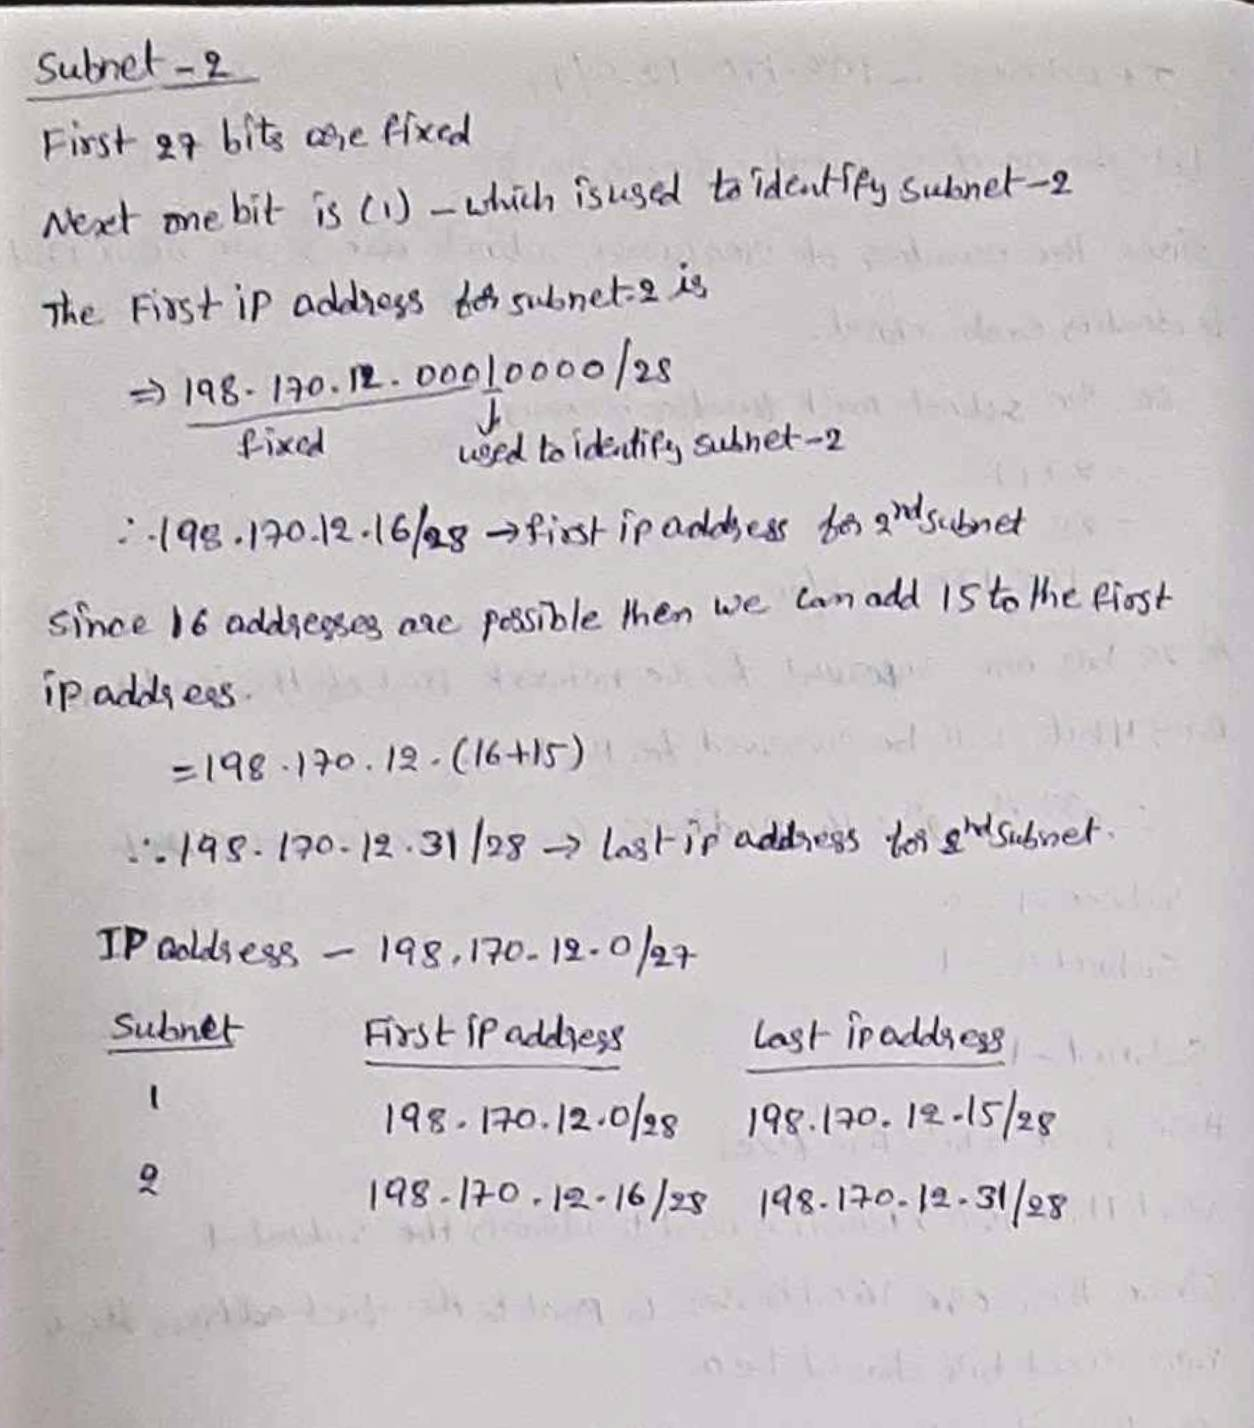 Subnet-2
First 27 bits are fixed
Next one bit is (1) - which is used to identify subnet-2
The First ip address for subnet-2 is
⇒ 198.170.12.00010000/28
fixed used to identify subnet-2
∴ 198.170.12.16/28 → first ip address for 2nd subnet
since 16 addresses are possible then we can add 15 to the first
ip address.
= 198.170.12.(16+15)
∴ 198.170.12.31/28 → last ip address for 2nd subnet.
IP address - 198.170.12.0/27
Subnet First ip address Last ip address
1 198.170.12.0/28 198.170.12.15/28
2 198.170.12.16/28 198.170.12.31/28